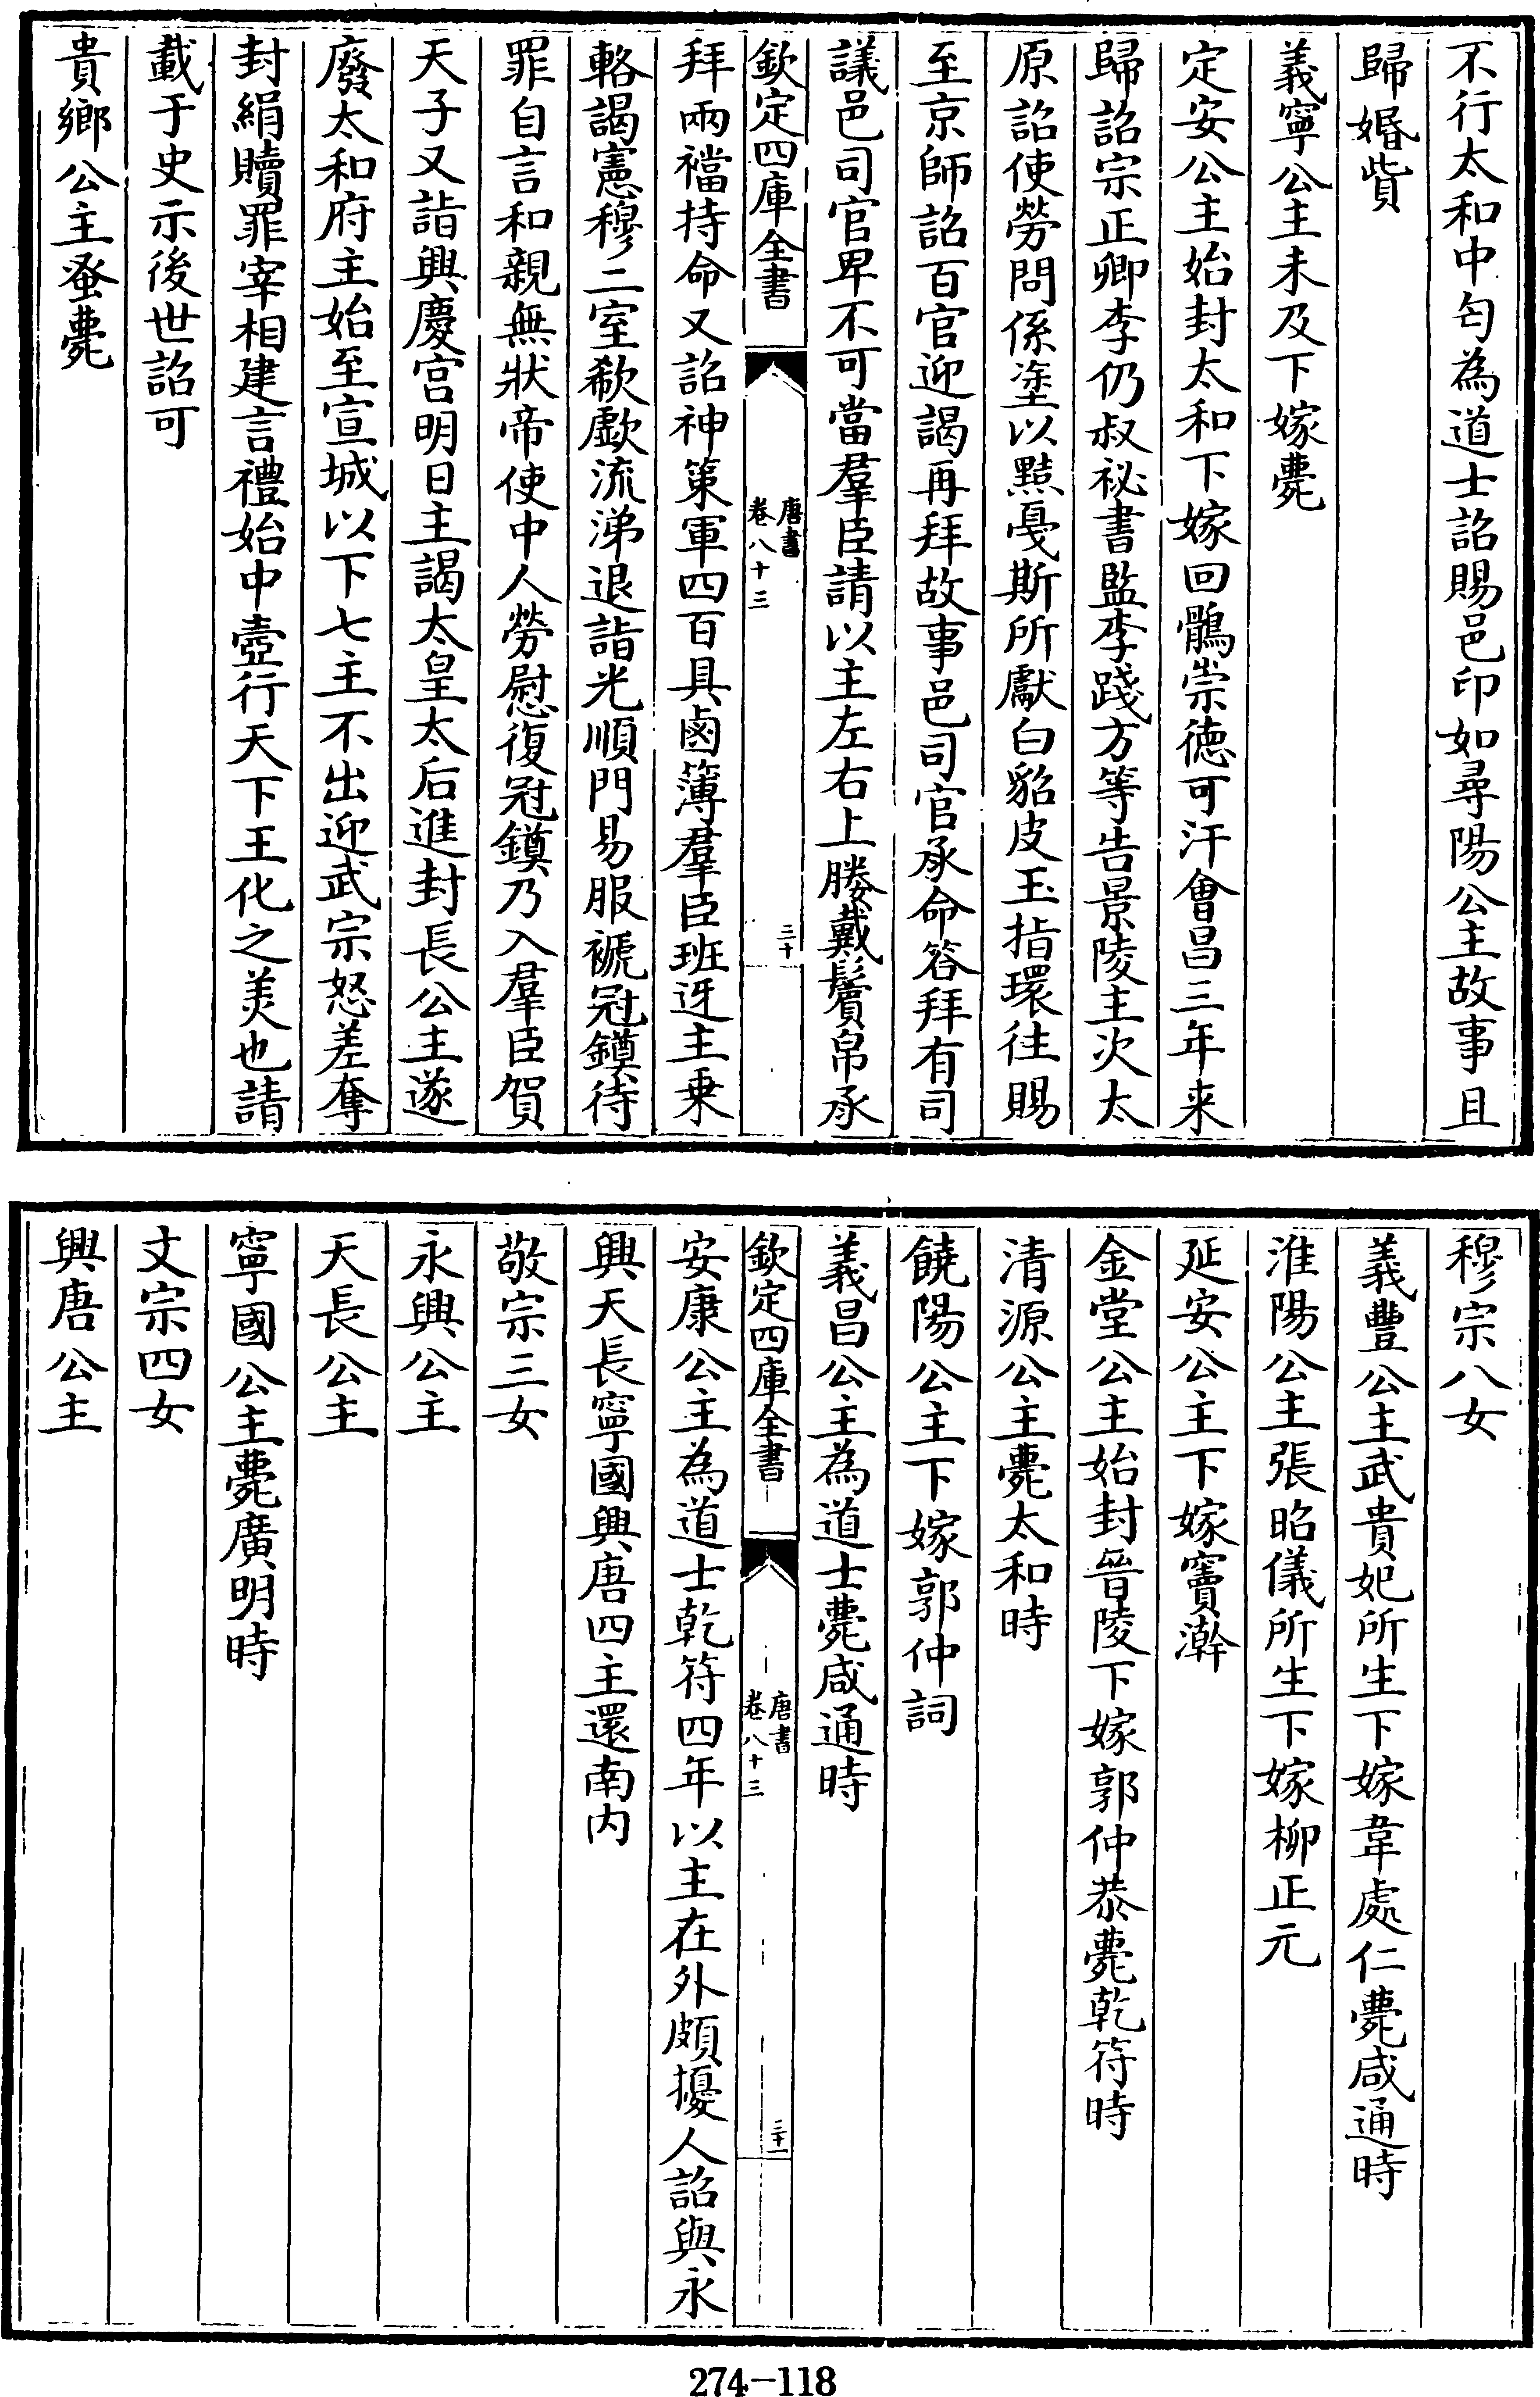 不行太和中匄為道士詔賜邑印如尋陽公主故事且
歸婚貲
義寧公主未及下嫁薨
定安公主始封太和下嫁回鶻崇德可汗會昌三年来
歸詔宗正卿李仍叔祕書監李踐方等告景陵主次太
原詔使勞問係塗以黠戛斯所獻白貂皮玉指環往賜
至京師詔百官迎謁再拜故事邑司官承命答拜有司
議邑司官卑不可當羣臣請以主左右上媵戴鬢帛承
欽定四庫全書
唐書
卷八十三
三十
拜兩襠持命又詔神策軍四百具鹵簿羣臣班迓主乗
輅謁憲穆二室欷歔流涕退詣光順門易服褫冠鐏待
罪自言和親無狀帝使中人勞慰復冠鐏乃入羣臣賀
天子又詣興慶宫明日主謁太皇太后進封長公主遂
廢太和府主始至宣城以下七主不出迎武宗怒差奪
封絹贖罪宰相建言禮始中壼行天下王化之美也請
載于史示後世詔可
貴鄉公主蚤薨
穆宗八女
義豐公主武貴妃所生下嫁韋處仁薨咸通時
淮陽公主張昭儀所生下嫁柳正元
延安公主下嫁竇澣
金堂公主始封晉陵下嫁郭仲恭薨乾符時
清源公主薨太和時
饒陽公主下嫁郭仲詞
義昌公主為道士薨咸通時
欽定四庫全書
唐書
卷八十三
三十一
安康公主為道士乾符四年以主在外頗擾人詔與永
興天長寧國興唐四主還南内
敬宗三女
永興公主
天長公主
寧國公主薨廣明時
文宗四女
興唐公主
274-118